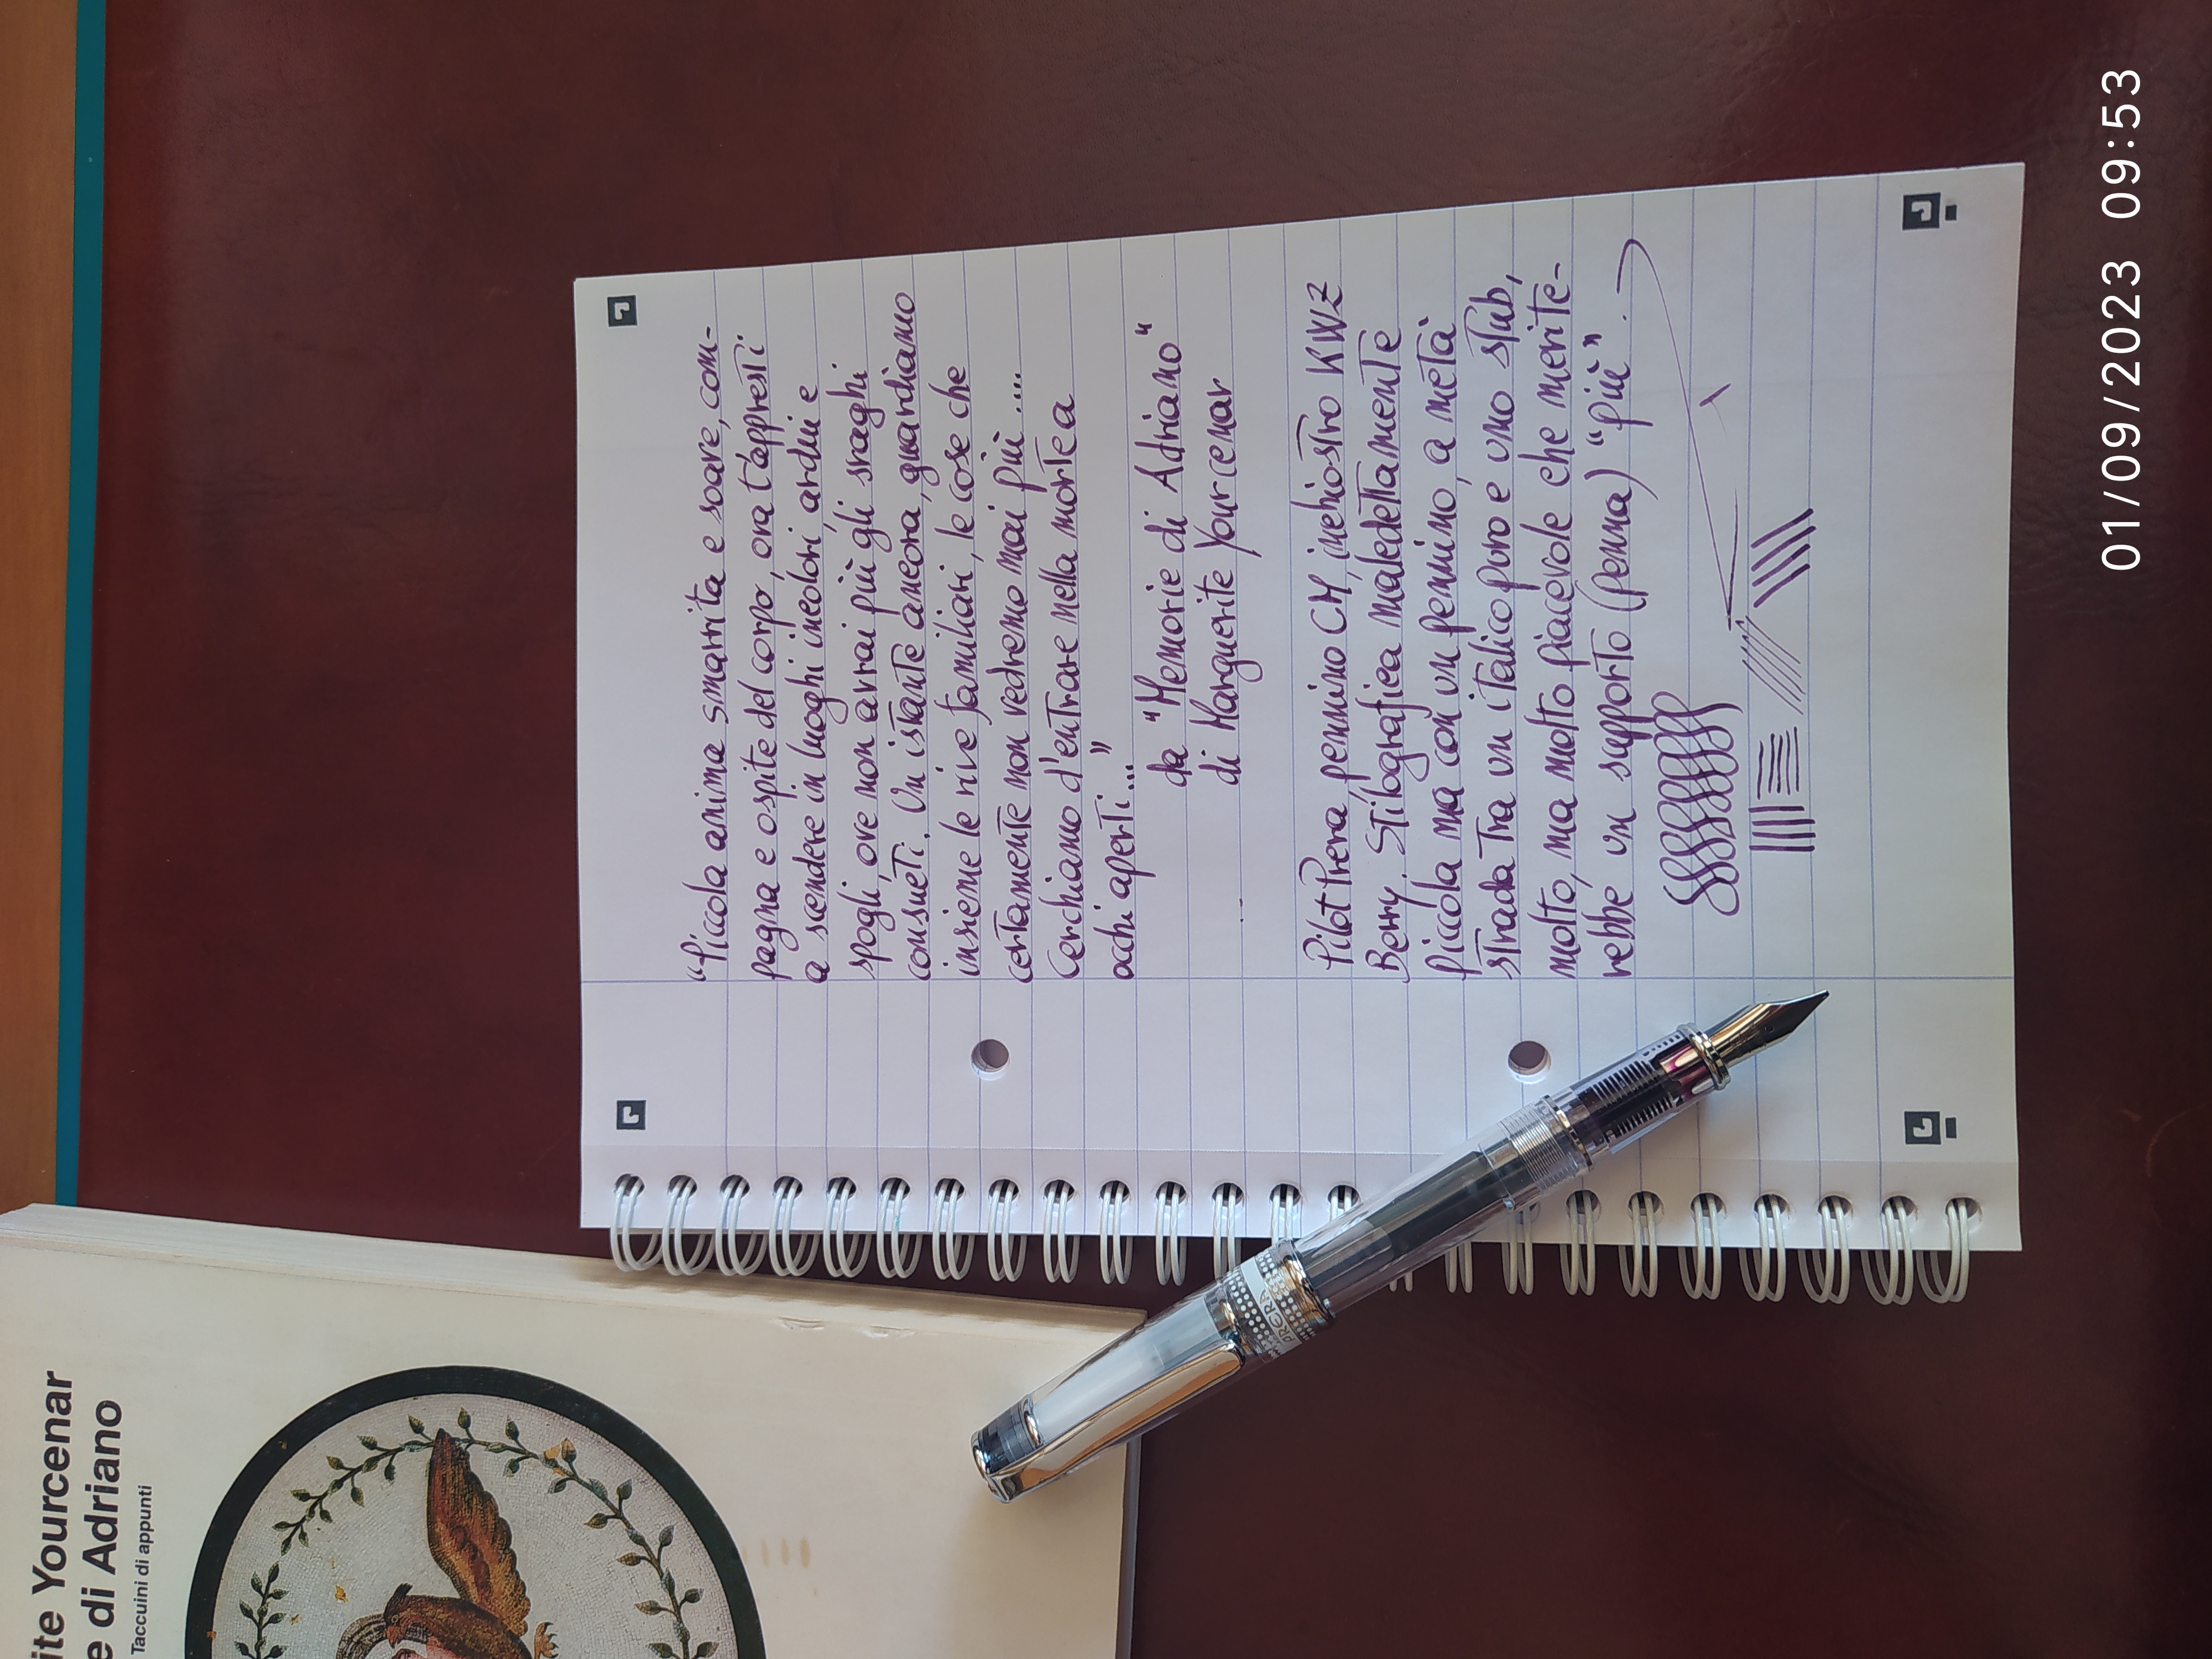 "Piccola anima smarrita e soave, com-
pagna e ospite del corpo, ora t'appresti
a scendere in luoghi incolori, ardui e
spogli, ove non avrai più gli svaghi
consueti. Un istante ancora, guardiamo
insieme le rive familiari, le cose che
certamente non vedremo mai più....
Cerchiamo d'entrare nella morte a
occhi aperti..."
da "Memorie di Adriano"
di Marguerite Yourcenar
Pilot Prera, pennino CM, inchiostro KWZ
Berry. Stilografica maledettamente
piccola ma con un pennino, a metà
strada tra un italico puro e uno stub,
molto, ma molto piacevole che merite-
rebbe un supporto (penna) "più".
PRERA
ite Yourcenar
e di Adriano
Taccuini di appunti
01/09/2023 09:53